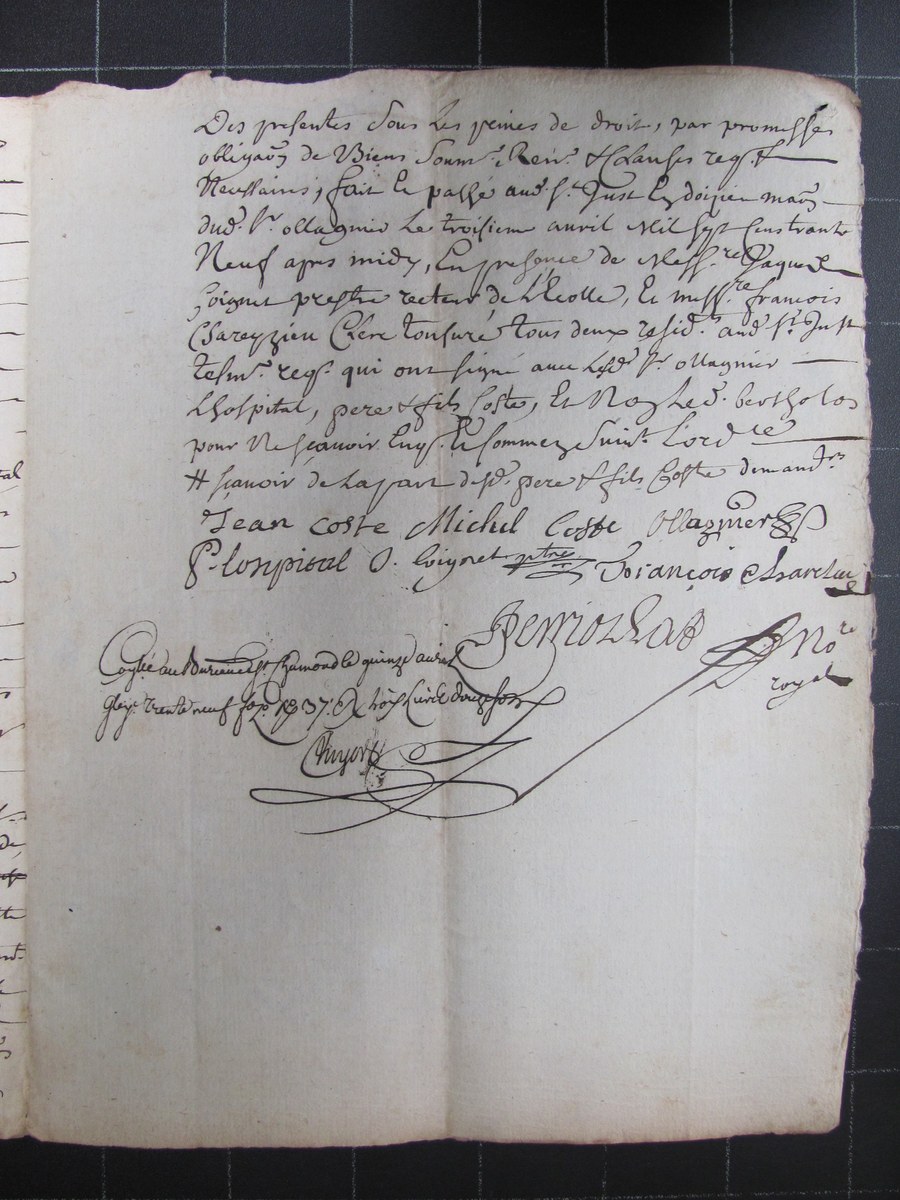 Des presentes sous les peines de droit, par promesses
obligaõn de Biens soumn. Renn. & Clauses reqs. &
Necessaires, fait et passé aud. St. Just En doizieu maõn
dud. Sr. ollagnier le troisieme avril Mil sept Cens trante
Neuf apres midy, En presence de Messre. Jaques
Coignet prestre recteur de l'Ecolle, Et messre. francois
Chareyzieu Clerc tonsuré tous deux resids. aud St. Just
tesms. reqs. qui ont signé avec Lesd. Sr. ollagnier
Lhospital, pere & fils Coste, Et Non Led. bertholas
pour Ne scavoir Enqs. Et sommez suivt. Lord ce
# scavoir de la part desd. pere & fils Coste demandrs
Jean coste Michel Coste Ollagnier
P. Lospital J. Coignet ptre françois
No re
royal
au Bureau de St. Chamond le quinze avril
trente neuf fo. 37. Rx